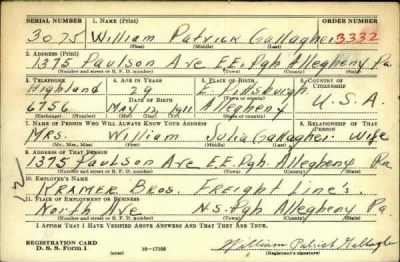 SERIAL NUMBER 1. NAME (Print) ORDER NUMBER
3075 William Patrick Gallagher 3332
(First) (Middle) (Last)
2. ADDRESS (Print)
1375 Paulson Ave E.E. Pgh Allegheny Pa.
(Number and street or R. F. D. number) (Town) (County) (State)
3. TELEPHONE 4. AGE IN YEARS 5. PLACE OF BIRTH 6. COUNTRY OF CITIZENSHIP
Highland 29 E. Pittsburgh
DATE OF BIRTH (Town or county)
6756 May 12, 1911 Allegheny U.S.A.
(Exchange) (Number) (Mo.) (Day) (Yr.) (State or country)
7. NAME OF PERSON WHO WILL ALWAYS KNOW YOUR ADDRESS 8. RELATIONSHIP OF THAT PERSON
Mrs. William Julia Gallagher Wife
(Mr., Mrs., Miss) (First) (Middle) (Last)
9. ADDRESS OF THAT PERSON
1375 Paulson Ave E.E. Pgh. Allegheny Pa
(Number and street or R. F. D. number) (Town) (County) (State)
10. EMPLOYER'S NAME
Kramer Bros. Freight Line's.
11. PLACE OF EMPLOYMENT OR BUSINESS
North Ave N.S. Pgh Allegheny Pa.
(Number and street or R. F. D. number) (Town) (County) (State)
I AFFIRM THAT I HAVE VERIFIED ABOVE ANSWERS AND THAT THEY ARE TRUE.
REGISTRATION CARD
D. S. S. Form 1 (over) 16-17105 William Patrick Gallagher
(Registrant's signature)